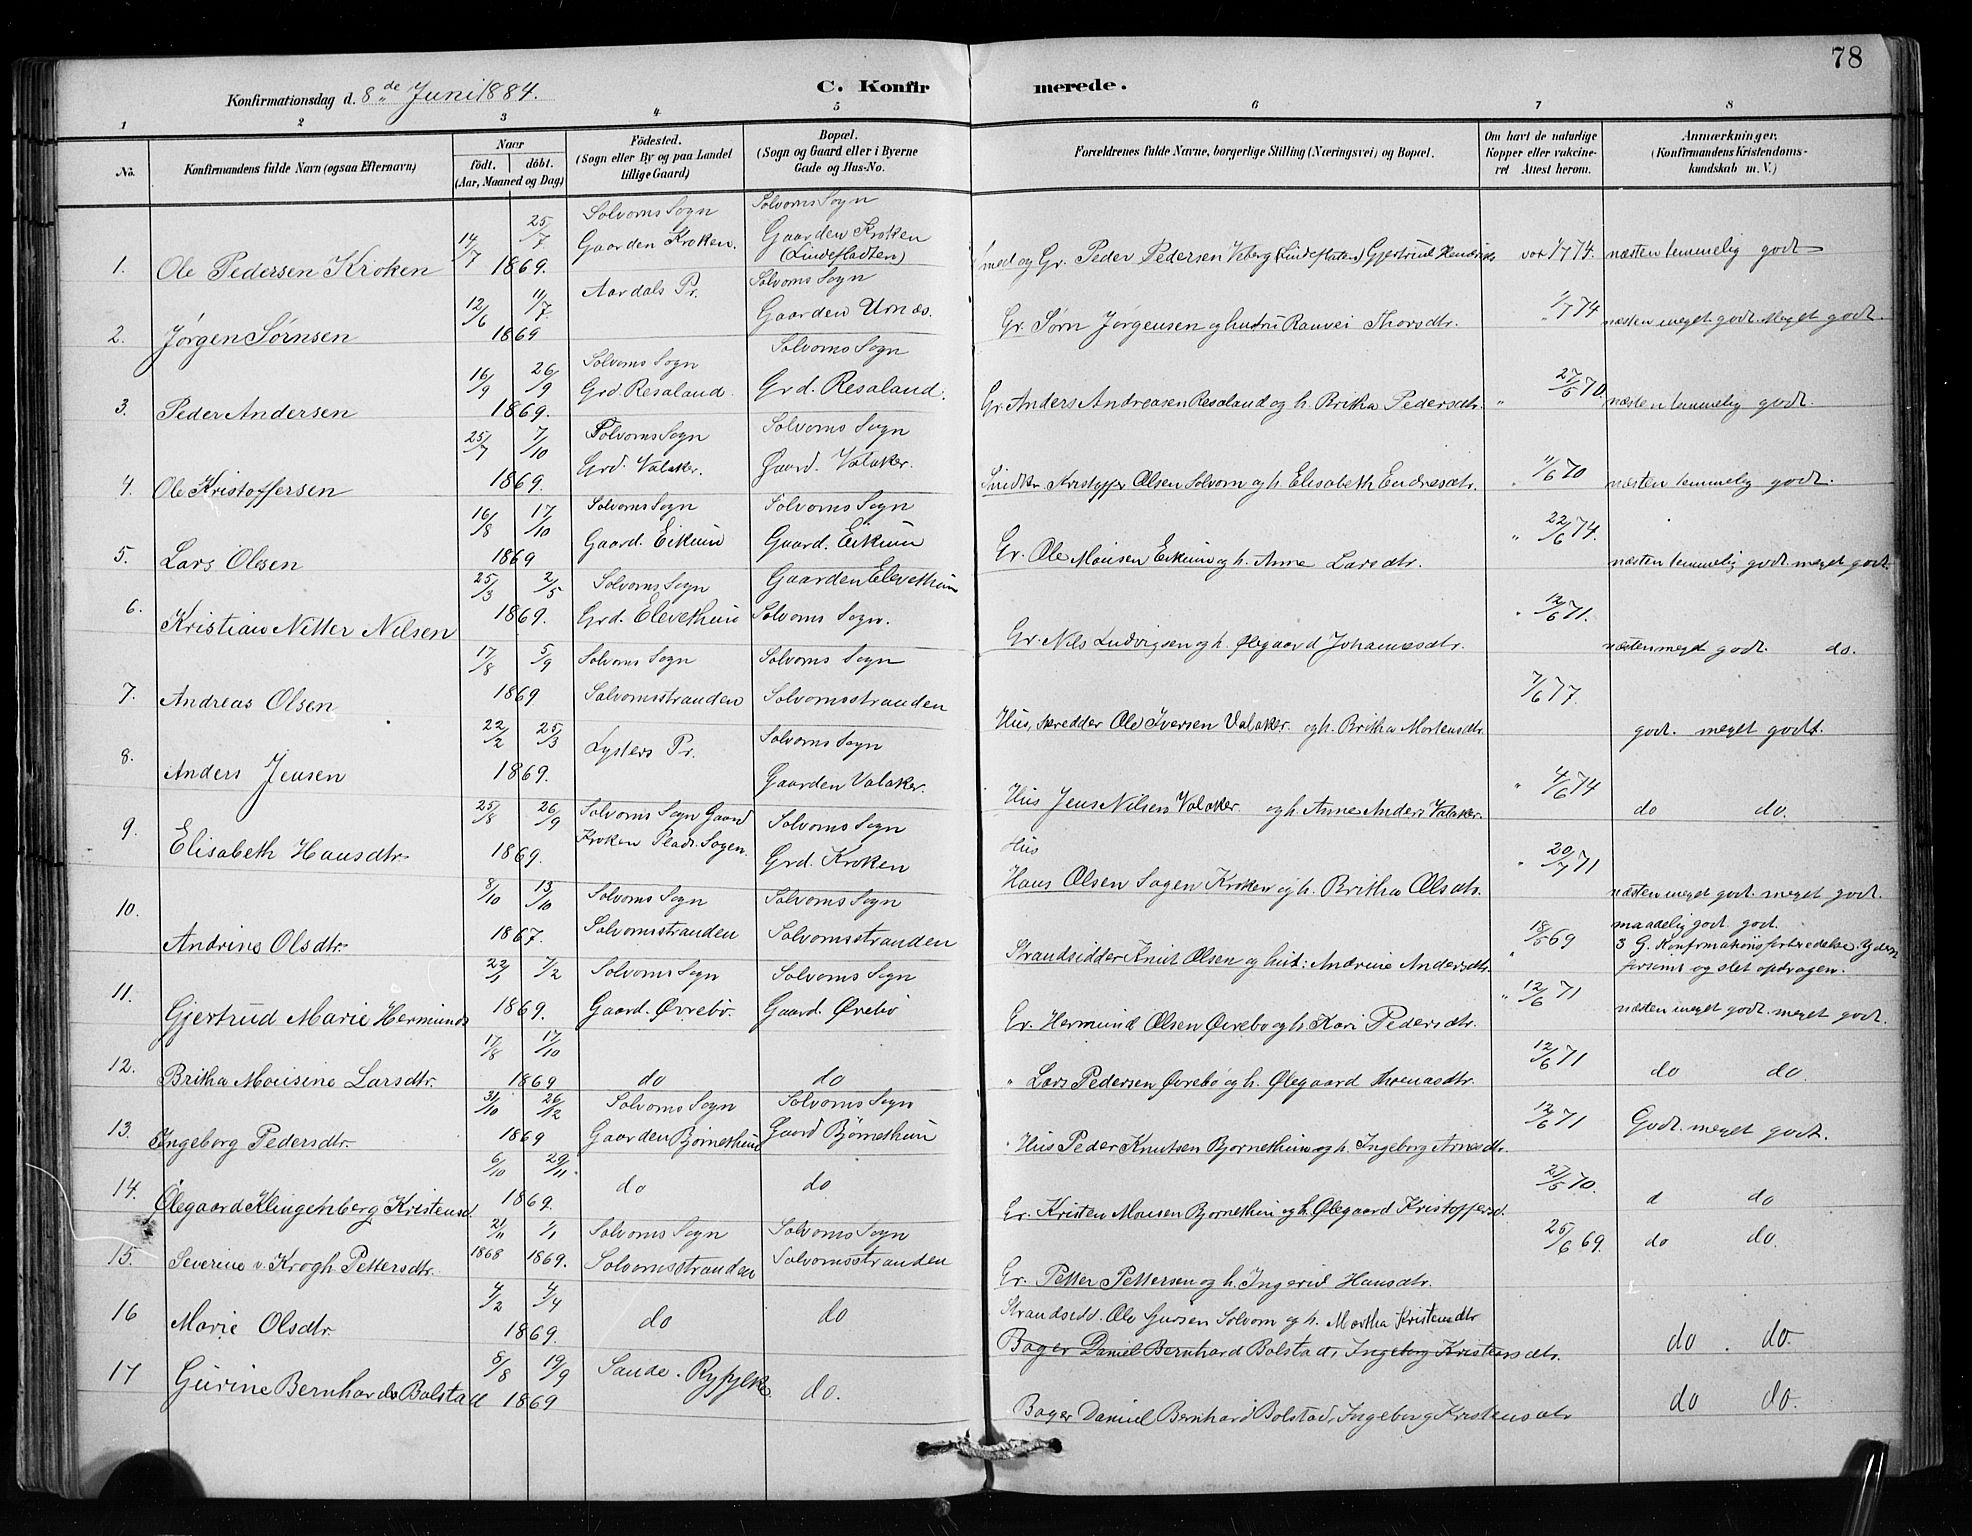 78
Konfirmationsdag d. 8de Juni 1884.
C. Konfirmerede.
1 2 3 4 5 6 7 8
No.
Konfirmandens fulde Navn (ogsaa Efternavn)
Naar
født. døbt.
(Aar, Maaned og Dag)
Födested.
(Sogn eller By og paa Landet
tillige Gaard)
Bopæl.
(Sogn og Gaard eller i Byerne
Gade og Hus-No.
Forældrenes fulde Navne, borgerlige Stilling (Næringsvei) og Bopæl.
Om havt de naturlige
Kopper eller vakcine-
ret Attest herom.
Anmærkninger,
(Konfirmandens Kristendoms-
kundskab m. V.)
1. Ole Pedersen Kroken 14/7 25/7 1869. Solvorns Sogn Gaarden Kroken. Solvorns Sogn Gaarden Kroken (Lindefladten) Gr. Peder Pedersen Veberg (Lindeflaten) Gjertrud 1/7 74. næsten temmelig godt
2. Jørgen Sørnsen 12/6 11/7 1869 Aardals Pr. Solvorns Sogn Gaarden Urnæs. Gr. Sørn Jørgensen og hustru Ranvei Thorsdtr. 1/7 74 næsten meget godt. Meget godt.
3. Peder Andersen 16/9 26/9 1869. Solvorns Sogn Grd. Resaland. Solvorns Sogn Grd. Resaland. Gr. Anders Andreasen Resaland og h. Britha Pedersdtr. " 27/5 70. næsten temmelig godt.
4. Ole Kristoffersen 25/7 7/10 1869. Solvorns Sogn Grd. Valaker. Solvorns Sogn Gaard. Valaker. Kristoffer Olsen Solvorn og h. Elisabeth Endresdtr. " 11/6 70 næsten temmelig godt.
5. Lars Olsen 16/8 17/10 1869 Solvorns Sogn Gaard. Eikum Solvorns Sogn Gaard. Eikum Gr. Ole Monsen Eikum og h. Anne Larsdtr. " 22/6 74. næsten temmelig godt meget godt.
6. Kristian Nitter Nilsen 25/3 2/5 1869. Solvorns Sogn Grd. Elvethun Gaarden Elvethun Solvorns Sogn. Gr. Nils Ludvigsen og h. Ølegaard Johannesdtr. " 12/6 71. næsten meget godt. do.
7. Andreas Olsen 17/8 5/9 1869 Solvorns Sogn Solvornsstranden Solvorns Sogn Solvornsstranden Hus, Ole Iversen Valaker. og h. Britha Mortensdtr. 7/6 77. godt. meget godt.
8. Anders Jensen 22/2 25/3 1869. Lysters Pr. Solvorns Sogn Gaarden Valaker. Hus Jens Nilsen Valaker og h. Anne Anders Valaker. " 4/6 74 do do.
9. Elisabeth Hansdtr. 25/8 26/9 1869. Solvorns Sogn Gaard Kroken Plads. Sogen. Solvorns Sogn Grd. Kroken Hus Hans Olsen Sogen Kroken og h. Britha Olsdtr. " 20/7 71 næsten meget godt. meget godt.
10. Andrine Olsdtr. 8/10 13/10 1867. Solvorns Sogn Solvornsstranden Solvorns Sogn Solvornsstranden Strandsidder Knut Olsen og hust: Andrine Andersdtr. " 18/5 69 maadelig godt. godt.
3 G. Konfirmationsforberedelse. Yderst
forsømt og slet opdragen.
11. Gjertrud Marie Hermunds 22/1 7/2 1869. Solvorns Sogn Gaard. Øvrebø. Solvorns Sogn Gaard. Øvrebø Gr. Hermund Olsen Øvrebø og h. Kari Pedersdtr. " 12/6 71 næsten meget godt. meget godt.
12. Britha Monsine Larsdtr. 17/8 17/10 1869 do do " Lars Pedersen Øvrebø og h. Ølegaard Thomasdtr. 12/6 71 do do.
13. Ingeborg Pedersdtr. 31/10 26/12 1869 Solvorns Sogn Gaarden Bjørnethun Solvorns Sogn Gaard Bjørnethun Hus Peder Knutsen Bjørnethun og h. Ingeborg Arnesdtr. 12/6 71 Godt. meget godt.
14. Ølegaard Klingenberg Kristensd. 6/10 29/11 1869. do do Gr. Kristen Monsen Bjørnethun og h. Ølegaard Kristoffersd. 27/5 70. d do
15. Severine v. Krogh Pettersdtr. 21/11 1868 1/1 1869. Solvorns Sogn Solvornsstranden Solvorns Sogn Solvornsstranden Gr. Petter Pettersen og h. Ingerid Hansdtr. 25/6 69. do do.
16 Marie Olsdtr. 4/2 4/4 1869. do do Strandsidd. Ole Solvorn og h. Martha Kristensdtr do . do.
Bager Daniel Bernhard Bolstad, Ingeborg Kristensdtr.
17 Gurine Bernharda Bolstad 8/8 19/9 1869 Sande. Ryfylke do. Bager Daniel Bernhard Bolstad, Ingeborg Kristensdtr do do.